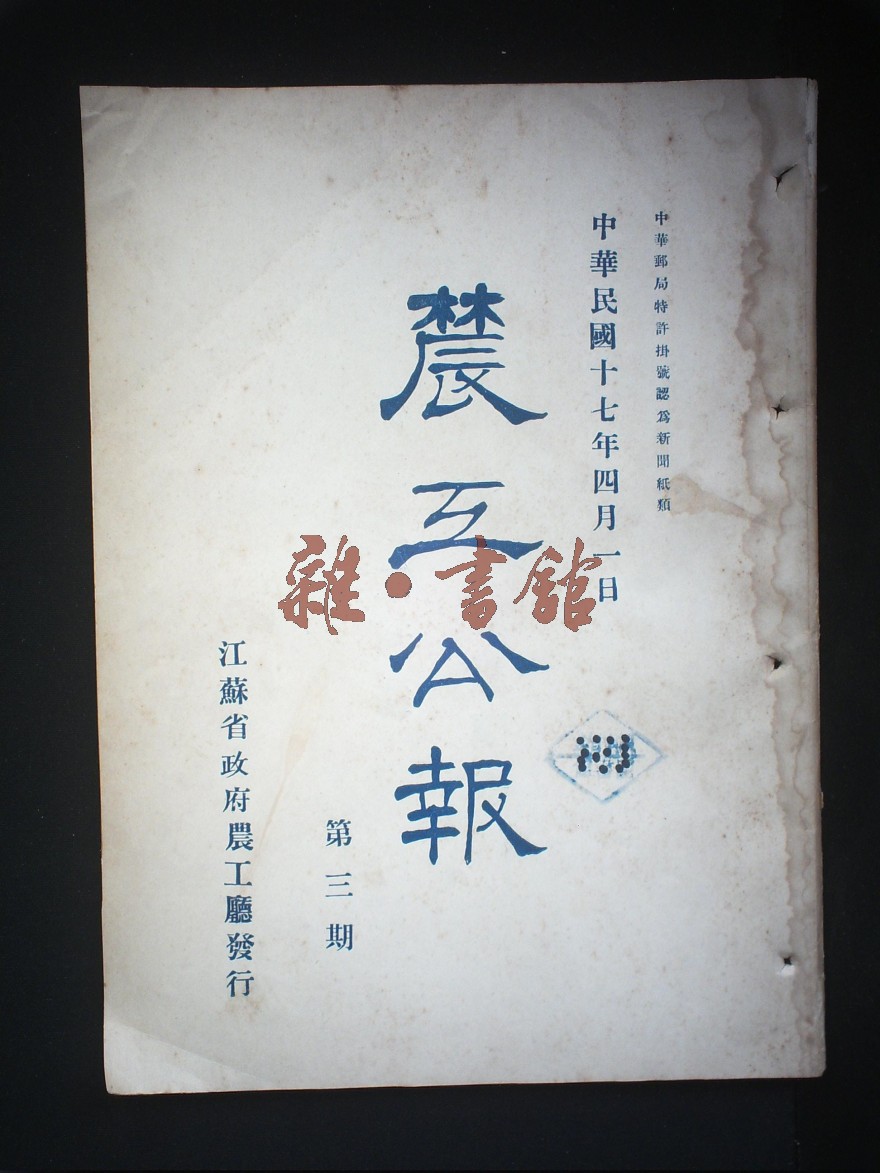 中華郵局特許掛號認爲新聞紙類
中華民國十七年四月一日
農工公報
第三期
江蘇省政府農工廳發行
雜·書館